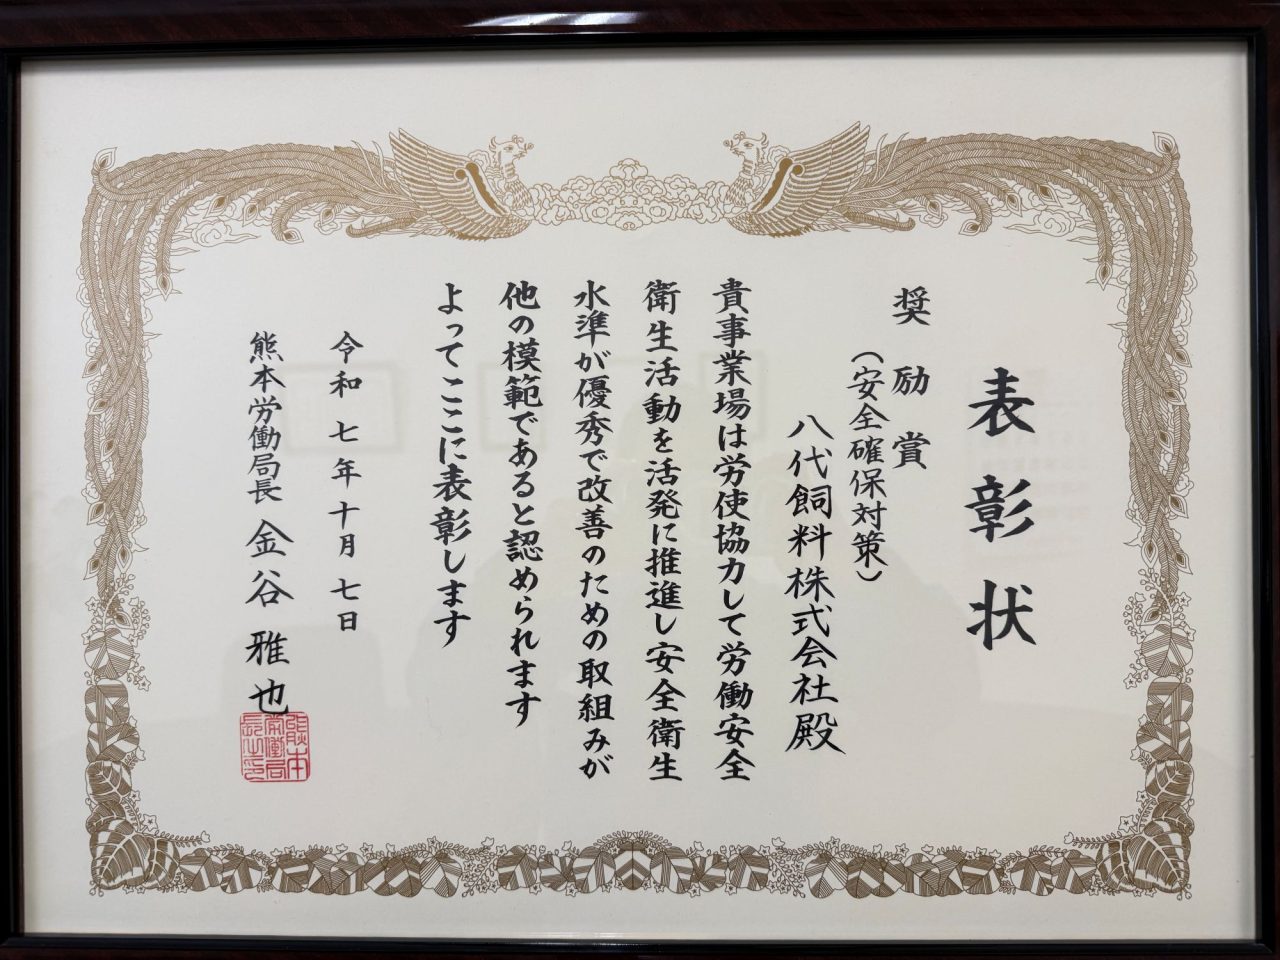 表彰状
奨励賞
(安全確保対策)
八代飼料株式会社殿
貴事業場は労使協力して労働安全
衛生活動を活発に推進し安全衛生
水準が優秀で改善のための取組みが
他の模範であると認められます
よってここに表彰します
令和七年十月七日
熊本労働局長 金谷雅也
熊本
労働局
長之印